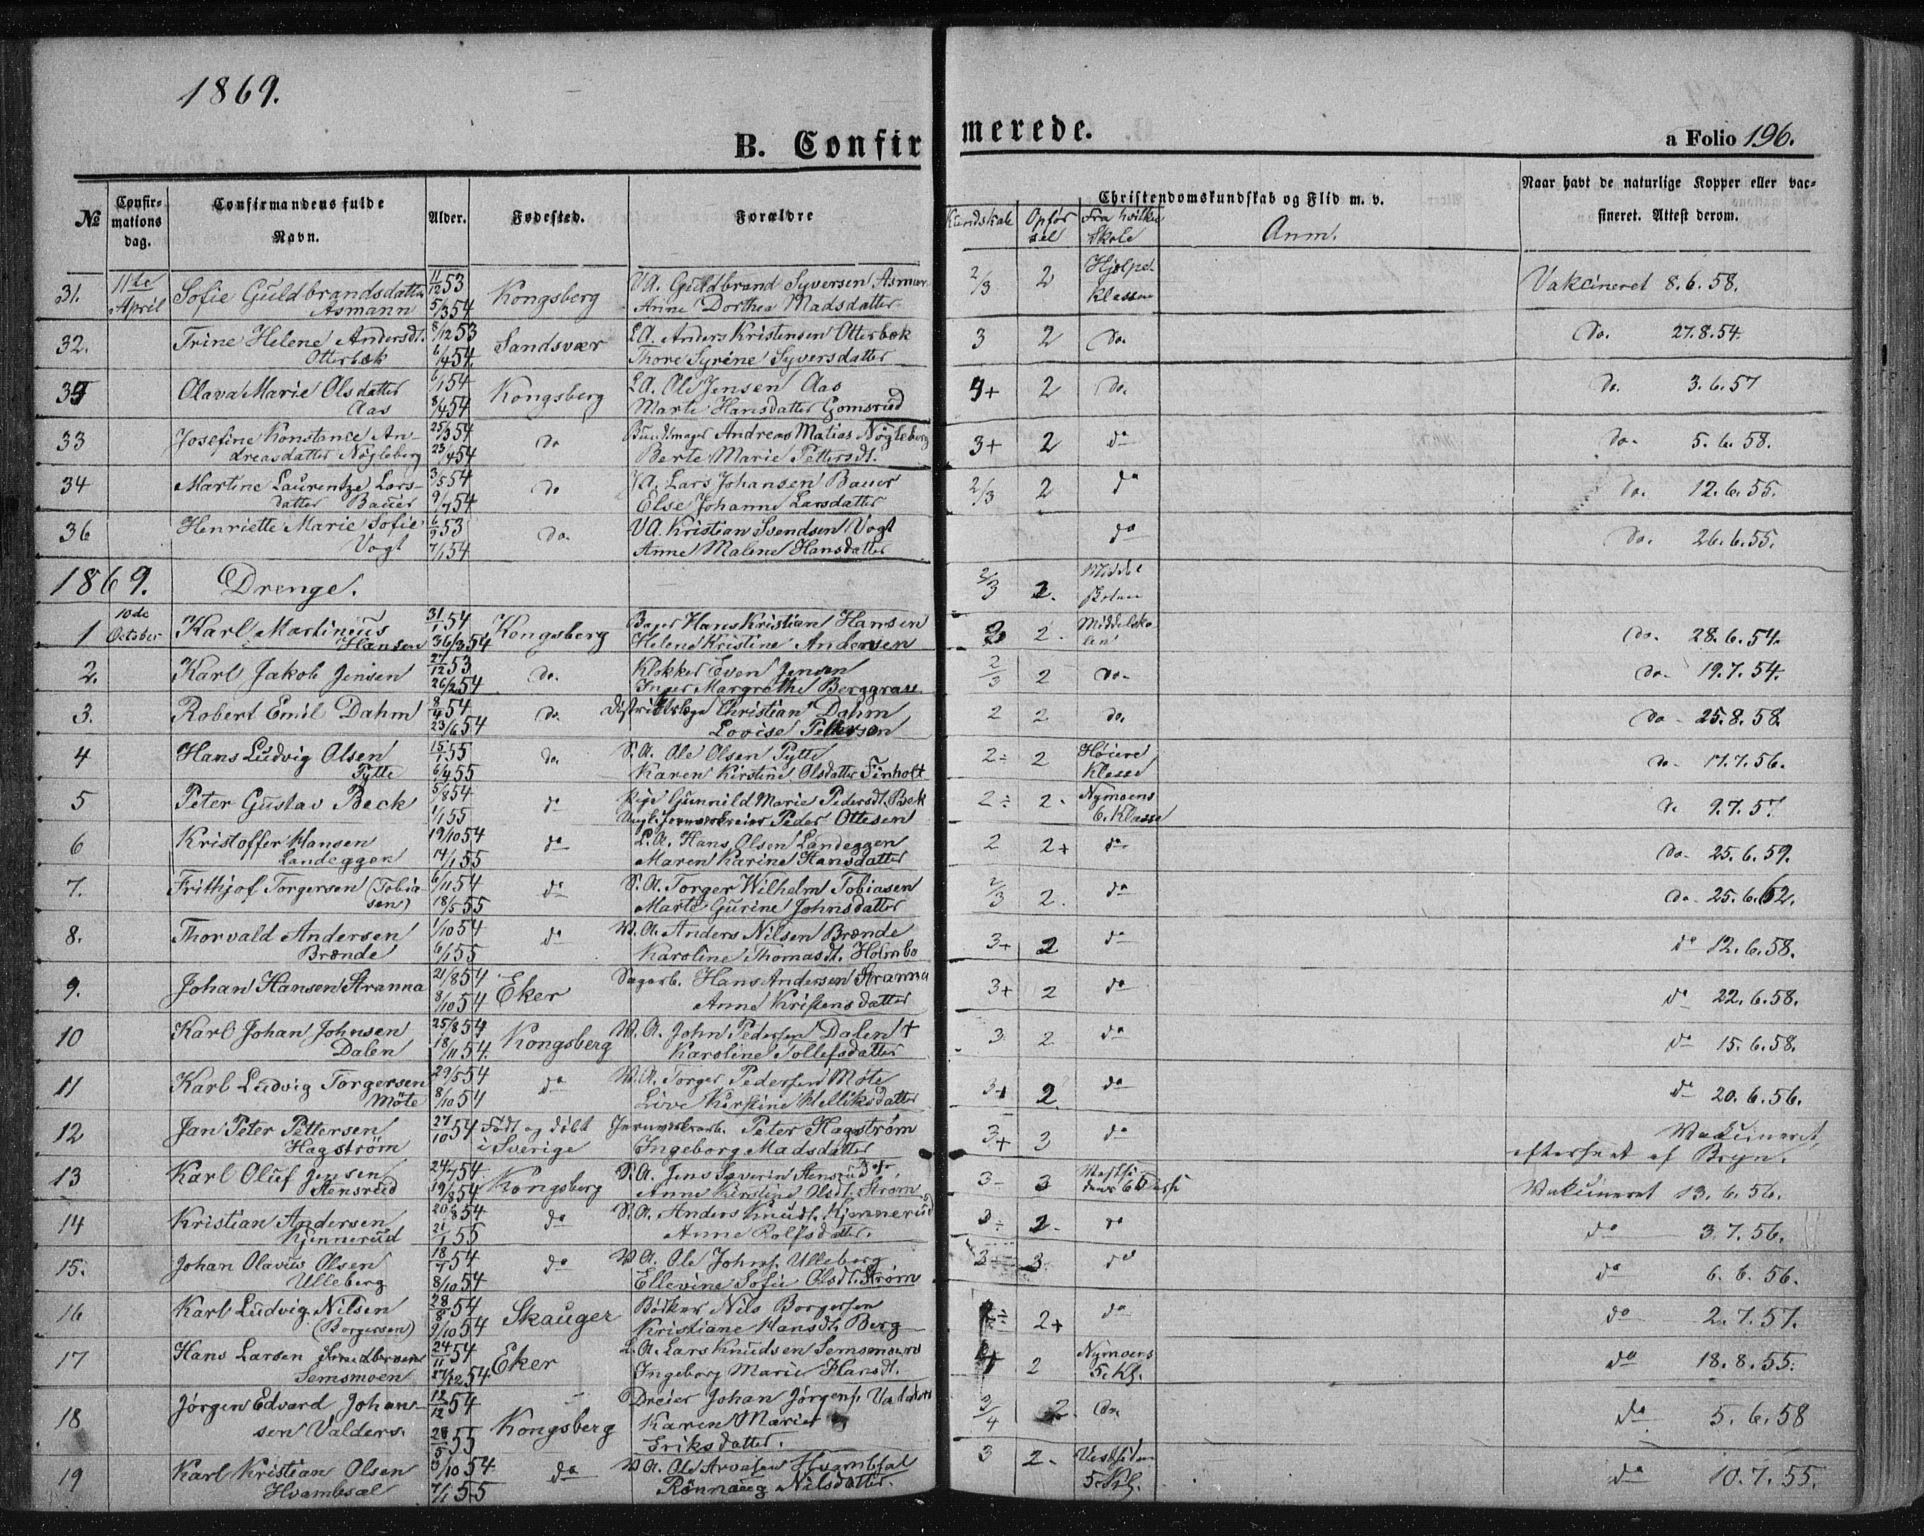 1869.
B. Confirmerede.
a Folio 196.
№ Confirmations dag. Confirmandens fulde Navn. Alder. Fødested. Forældre
Christendomskundskab og Flid m. v.
Kundskab Opførsel Fra hvilken Skole Anm.
Naar havt de naturlige Kopper eller vaccineret. Attest derom.
31. 11te Sofie Guldbrandsdatter 11/12 53 Kongsberg VA. Guldbrand Syversen Asmann 2/3 2 Hjelpe- Vakcineret 8.6.58.
April Asmann 5/3 54 Anne Dorthea Madsdatter klassen
32. Trine Helene Andersdt. 8/12 53 Sandsvær LA. Anders Kristensen Otterbæk 3 2 Do. Do. 27.8.54.
Otterbæk 6/4 54. Thore Syrine Syversdatter
35 Olava Marie Olsdatter 6/1 54 Kongsberg LA. Ole Jensen Aas 4+ 2 Do. Do. 3.6.57
Aas 8/4 54 Marte Hansdatter Gomsrud
33 Josefine Konstance An- 25/3 54 Do Andreas Matias Nøgleberg 3+ 2 do Do. 5.6.58.
dreasdatter Nøgleberg 23/4 54 Berte Marie Pettersdt.
34 Martine Laurentze Lars- 3/5 54 Do VA. Lars Johansen Bauer 2/3 2 do Do. 12.6.55.
datter Bauer 9/7 54 Else Johanne Larsdatter
36 Henriette Marie Sofie 6/9 53 Do. VA. Kristian Svendsen Vogt do Do. 26.6.55.
Vogt 7/1 54 Anne Malene Hansdatter
1869. Drenge. 2/3 2. Middel
1 10de Karl Martinius 31/1 54 Kongsberg Bager Hans Kristian Hansen 2 2. Middelsko- Do. 28.6.54.
October Hansen 54 Helene Kristine Andersen len
2. Karl Jakob Jensen 27/12 53 do. Klokker Even Jensen 2/3 2 Do. Do. 19.7.54.
26/2 54 Inger Margrethe Berggrav
3. Robert Emil Dahm 8/4 54 do. Distriktslæge Christian Dahm 2 2 do. Do. 25.8.58.
23/6 54 Lovise Petersen
4 Hans Ludvig Olsen 15/1 55 do. S.A. Ole Olsen Pytte 2÷ 2 Høiere Do. 17.7.56.
Pytte 6/4 55 Karen Kirstine Olsdatter Finholt Klasse
5 Peter Gustav Beck 5/8 54 do Pige Gunnild Marie Pedersdt. Bek 2÷ 2. Nymoens do 9.7.57
1/1 55 Peder Ottesen 6. Klasse
6 Kristoffer Hansen 19/10 54 do L.A. Hans Olsen Landeggen 2 2+ do Do. 25.6.59.
Landeggen 14/1 55 Maren Karine Hansdatter
7. Frithjof Torgersen (Tobia- 6/11 54 do S.A. Torger Wilhelm Tobiasen 2/3 2. do Do. 25.6.62.
sen) 18/5 55 Marte Gurine Johnsdatter
8. Thorvald Andersen 1/10 54 do W.A. Anders Nilsen Brænde 3+ 2 do do 12.6.58.
Brænde 6/1 55 Karoline Thomasdt. Holmbo
9. Johan Hansen Stranna 21/8 54 Eker Sagarb. Hans Andersen Stranna 3+ 2 do do 22.6.58.
8/10 54 Anne Kristensdatter
10 Karl Johan Johnsen 25/8 54 Kongsberg W.A. John Pedersen Dalen + 3 2 do do 15.6.58.
Dalen 18/11 54. Karoline Tollefsdatter
11 Karl Ludvig Torgersen 29/5 54 do W.A. Torger Pedersen Møte 3+ 2. do do 20.6.56.
Möte 8/10 54 Live Kirstine Helliksdatter
12 Jan Peter Pettersen 27/10 54 Født og døbt Jernværksarb. Peter Hagstrøm 3+ 3 do Vakcineret,
Hagström i Sverige Ingeborg Madsdatter efterseet af Bryn.
13 Karl Oluf Jensen 24/7 54 Kongsberg S.A. Jens Severin Stensrud 3- 3 Vakcineret 13.6.56.
Stensrud 19/8 54 Anne Kirstine Olsdt. Strøm
14 Kristian Andersen 20/8 54 do S.A. Anders Knudt. Kjennerud 3÷ 2. do do 3.7.56.
Kjennerud 21/1 55 Anne Rolfsdatter.
15. Johan Olavus Olsen 18/7 54 do W.A. Ole Johns. Ulleberg 3+ 3. do do 6.6.56.
Ulleberg 8/10 54 Ellevine Sofie Olsdt. Strøm
16 Karl Ludvig Nilsen 28/8 54 Skauger Bødker Nils Borgersen 2+ do do 2.7.57.
(Borgersen) 9/10 54 Kristiane Hansdt. Berg
17 Hans Larsen 24/11 54 Eker L.A. Lars Knudsen Semsmoen 2 Nymoens do 18.8.55.
Semsmoen 17/12 54. Ingeborg Marie Hansdt. 5. Kl.
18 Jørgen Edvard Johan- 12/12 54 Kongsberg Dreier Johan Jörgens. Valders 3/4 2. do. do 5.6.58
sen Valders. 28/5 55 Karen Marie
Eriksdatter.
19 Karl Kristian Olsen 9/10 54. do W.A. Ole Arvesen Hvambsal 3 2. Vestsidens do 10.7.55.
Hvambsal 7/1 55 Rønnaug Nilsdatter. 5. Kl.